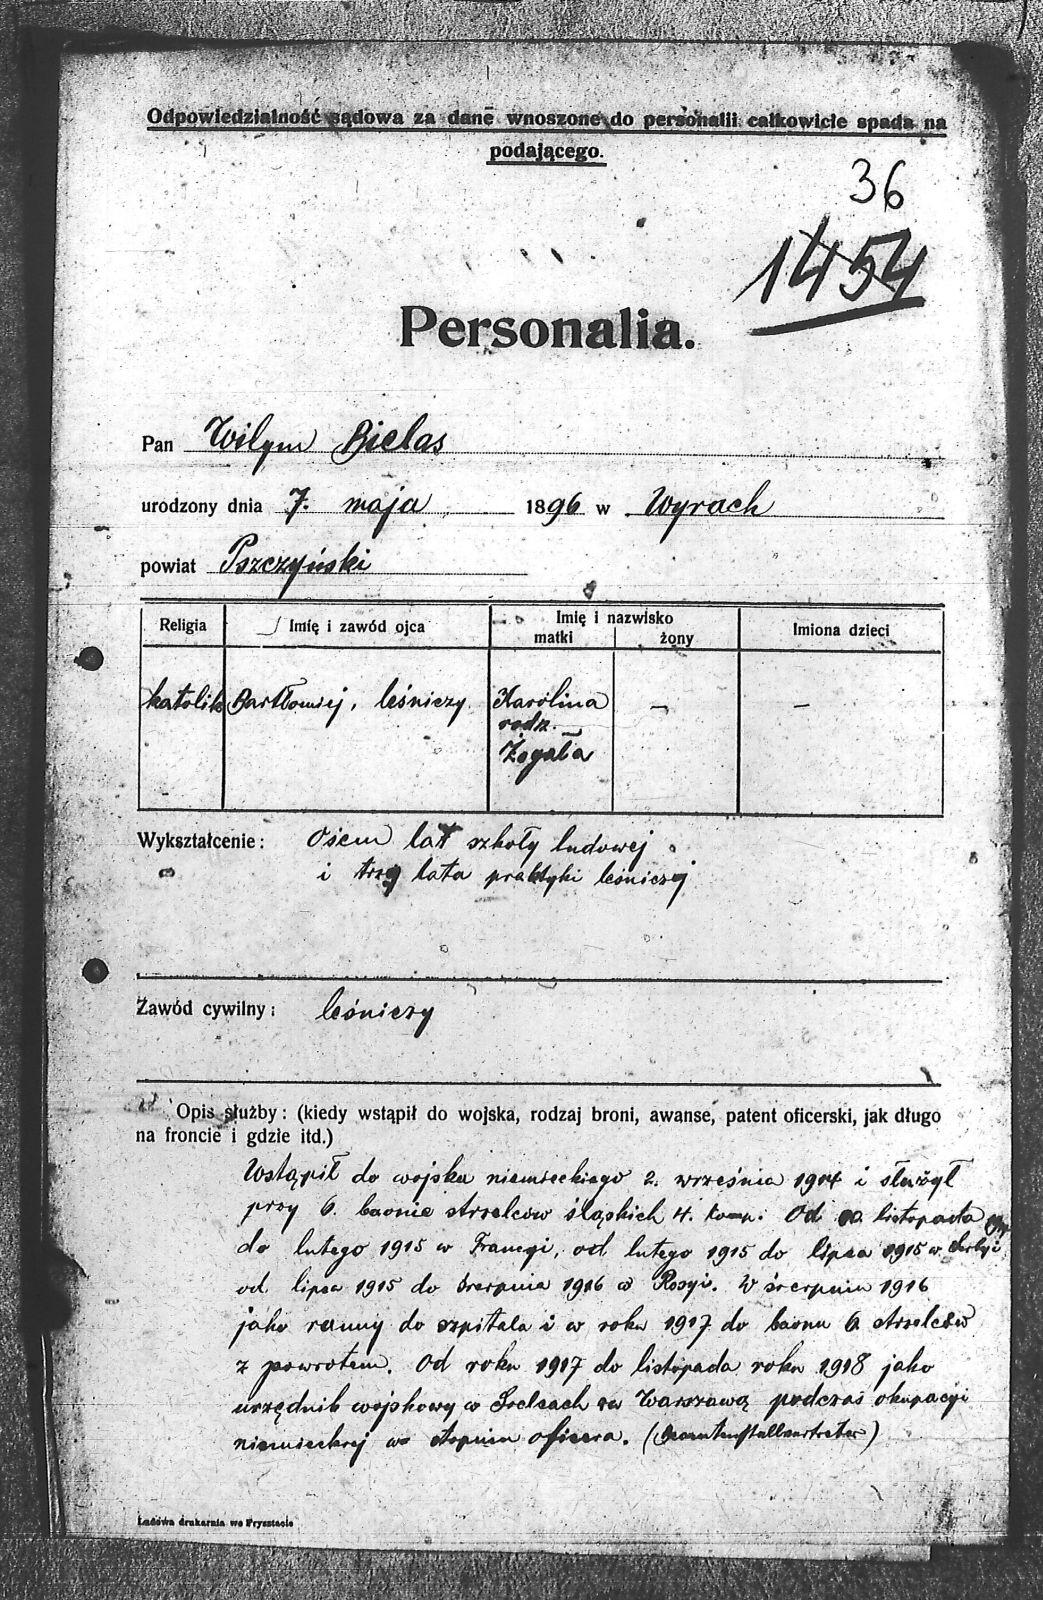 Odpowiedzialność sądowa za dane wnoszone do personalii całkowicie spada na
podającego.
36
1454
Personalia.
Pan Wilym Bielas
urodzony dnia 7. maja 1896 w Wyrach
powiat Pszczyński
Religia Imię i zawód ojca Imię i nazwisko Imiona dzieci
matki żony
katolik Bartłomiej, leśniczy Karolina — —
rodz.
Żogała
Wykształcenie: Osiem lat szkoły ludowej
i trzy lata praktyki leśniczej
Zawód cywilny: leśniczy
Opis służby: (kiedy wstąpił do wojska, rodzaj broni, awanse, patent oficerski, jak długo
na froncie i gdzie itd.)
Wstąpił do wojska niemieckiego 2. września 1914 i służył
przy 6. baonie strzelców śląskich 4. komp. Od listopada
do lutego 1915 w Francji, od lutego 1915 do lipca 1915 w Serbji
od lipca 1915 do sierpnia 1916 w Rosyi. W sierpniu 1916
jako ranny do szpitala i w roku 1917 do baonu 6. strzelców
z powrotem. Od roku 1917 do listopada roku 1918 jako
urzędnik wojskowy w Sielcach Warszawą podczas okupacyi
niemieckiej w stopniu oficera. (Beamtenstellvertreter)
Ludowa drukarnia we Frysztacie